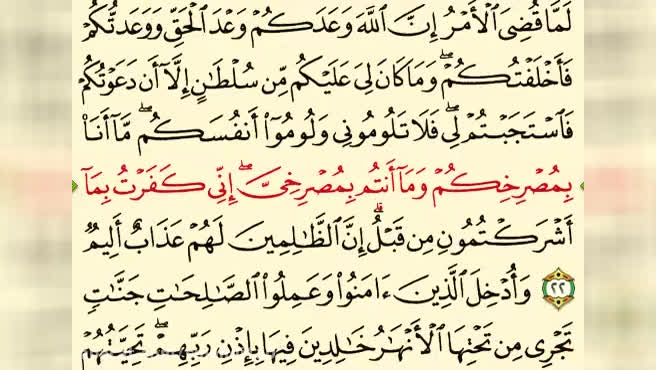 لَمَّا قُضِىَ ٱلْأَمْرُ إِنَّ ٱللَّهَ وَعَدَكُمْ وَعْدَ ٱلْحَقِّ وَوَعَدتُّكُمْ
فَأَخْلَفْتُكُمْ ۖ وَمَا كَانَ لِىَ عَلَيْكُم مِّن سُلْطَـٰنٍ إِلَّآ أَن دَعَوْتُكُمْ
فَٱسْتَجَبْتُمْ لِى ۖ فَلَا تَلُومُونِى وَلُومُوٓا۟ أَنفُسَكُم ۖ مَّآ أَنَا۠
بِمُصْرِخِكُمْ وَمَآ أَنتُم بِمُصْرِخِىَّ ۖ إِنِّى كَفَرْتُ بِمَآ
أَشْرَكْتُمُونِ مِن قَبْلُ ۗ إِنَّ ٱلظَّـٰلِمِينَ لَهُمْ عَذَابٌ أَلِيمٌ
٢٢ وَأُدْخِلَ ٱلَّذِينَ ءَامَنُوا۟ وَعَمِلُوا۟ ٱلصَّـٰلِحَـٰتِ جَنَّـٰتٍ
تَجْرِى مِن تَحْتِهَا ٱلْأَنْهَـٰرُ خَـٰلِدِينَ فِيهَا بِإِذْنِ رَبِّهِمْ ۖ تَحِيَّتُهُمْ